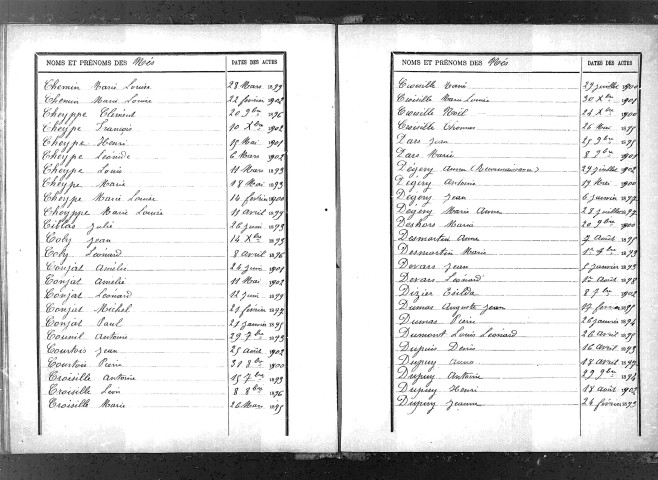 NOMS ET PRÉNOMS DES Nés DATES DES ACTES
Chemin Marie Louise 23 Mars 1899
Chemin Marie Louise 22 février 1902
Cheyppe Clément 20 9bre 1896
Cheype François 10 Xbre 1902
Cheype Henri 15 Mai 1901
Cheype Léonide 6 Mars 1902
Cheype Louis 11 Mars 1893
Cheype Marie 18 Mai 1893
Cheype Marie Louise 14 février 1900
Cheyppe Marie Louise 11 avril 1899
Ciblas Julie 26 juin 1893
Coly Jean 14 Xbre 1893
Coly Léonard 8 avril 1896
Conjat Amélie 24 juin 1901
Conjat Amélie 11 Mai 1902
Conjat Léonard 12 juin 1899
Conjat Michel 21 février 1897
Conjat Paul 21 janvier 1895
Couail Antoine 29 7bre 1893
Courtois Jean 25 août 1902
Courtois Pierre 31 8bre 1900
Croisille Antoine 15 7bre 1893
Croisille Léon 8 8bre 1896
Croisille Marie 26 Mars 1895
NOMS ET PRÉNOMS DES Nés DATES DES ACTES
Croisille Marie 27 juillet 1900
Croisille Marie Louise 30 Xbre 1901
Croisille Noël 24 Xbre 1900
Croisille 26 Mai 1895
Dars Jean 25 9bre 1895
Dars Marie 8 9bre 1901
Dégéry Anna 29 juillet 1902
Dégéry Antoine 19 Mai 1900
Dégéry Jean 6 janvier 1897
Dégéry Marie Anne 28 juillet 1897
Deshors Marie 20 9bre 1900
Desmartin Anne 7 Août 1895
Desmartin Marie 1er 7bre 1893
Devars Jean 5 janvier 1893
Devars Léonard 1er Août 1898
Dézier Exilda 8 7bre 1902
Dumas Auguste Jean 17 février 1895
Dumas Pierre 26 janvier 1894
Dumont Louis Léonard 20 avril 1895
Dupuis Denis 16 avril 1893
Dupuy Anna 18 avril 1897
Dupuy Antoine 29 9bre 1894
Dupuy Henri 18 août 1902
Dupuy Jeanne 24 février 1893